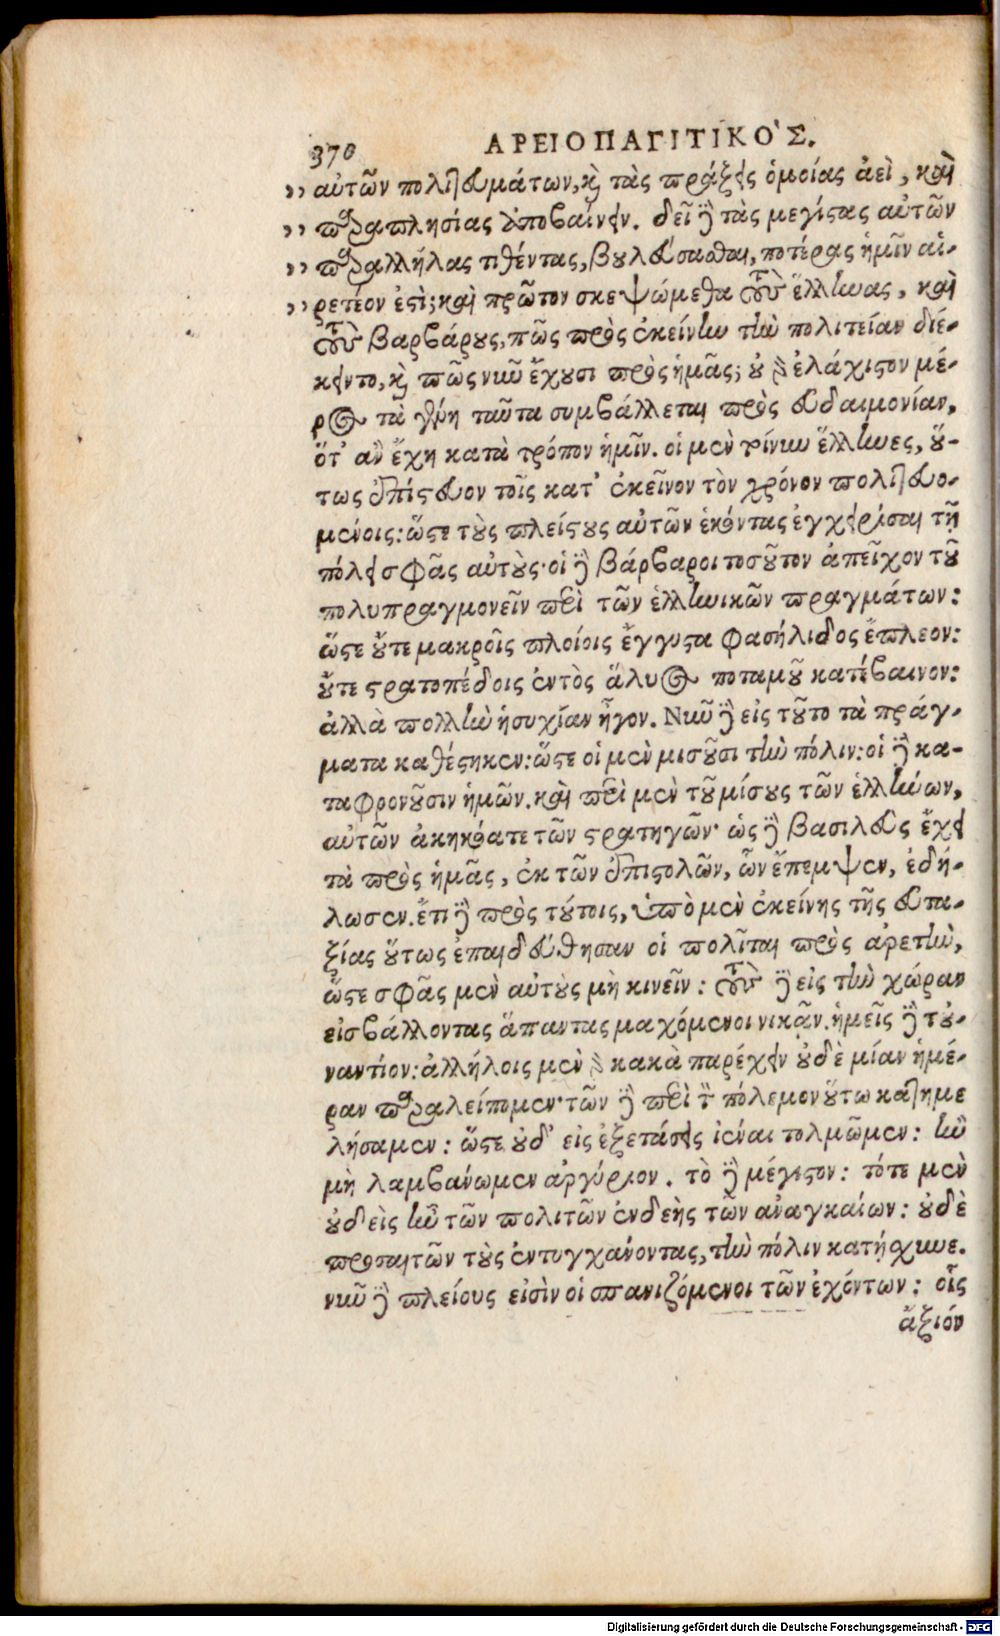 370 ΑΡΕΙΟΠΑΓΙΤΙΚΟ'Σ.
,, αὐτῶν πολιτευμάτων, καὶ τὰς πράξεις ὁμοίας ἀεὶ, καὶ
,, παραπλησίας ἀποβαίνειν. δεῖ δὲ τὰς μεγίστας αὐτῶν
,, παραλλήλας τιθέντας, βουλεύσασθαι, ποτέρας ἡμῖν αἱ-
,, ρετέον ἐστὶ; καὶ πρῶτον σκεψώμεθα τοὺς ἕλληνας, καὶ
τοὺς βαρβάρους, πῶς πρὸς ἐκείνην τὴν πολιτείαν διέ-
κειντο, καὶ πῶς νῦν ἔχουσι πρὸς ἡμᾶς; οὐ γὰρ ἐλάχιστον μέ-
ρος τὰ γένη ταῦτα συμβάλλεται πρὸς εὐδαιμονίαν,
ὅτ' ἂν ἔχη κατὰ τρόπον ἡμῖν. οἱ μὲν τοίνυν ἕλληνες, οὕ-
τως ἐπίστευον τοῖς κατ' ἐκεῖνον τὸν χρόνον πολιτευο-
μένοις: ὥστε τοὺς πλείστους αὐτῶν ἑκόντας ἐγχειρίσαι τῇ
πόλει σφᾶς αὐτούς· οἱ δὲ βάρβαροι τοσοῦτον ἀπεῖχον τοῦ
πολυπραγμονεῖν περὶ τῶν ἑλληνικῶν πραγμάτων:
ὥστε οὔτε μακροῖς πλοίοις ἔγγυστα φασήλιδος ἔπλεον:
οὔτε στρατοπέδοις ἐντὸς ἅλυος ποταμοῦ κατέβαινον:
ἀλλὰ πολλὴν ἡσυχίαν ἦγον. Νῦν δὲ εἰς τοῦτο τὰ πράγ-
ματα καθέστηκεν: ὥστε οἱ μὲν μισοῦσι τὴν πόλιν: οἱ δὲ κα-
ταφρονοῦσιν ἡμῶν. καὶ περὶ μὲν τοῦ μίσους τῶν ἑλλήνων,
αὐτῶν ἀκηκόατε τῶν στρατηγῶν· ὡς δὲ βασιλεὺς ἔχει
τὰ πρὸς ἡμᾶς, ἐκ τῶν ἐπιστολῶν, ὧν ἔπεμψεν, ἐδή-
λωσεν. ἔτι δὲ πρὸς τούτοις, ὑπὸ μὲν ἐκείνης τῆς εὐτα-
ξίας οὕτως ἐπαιδεύθησαν οἱ πολῖται πρὸς ἀρετὴν,
ὥστε σφᾶς μὲν αὐτοὺς μὴ κινεῖν: τοὺς δὲ εἰς τὴν χώραν
εἰσβάλλοντας ἅπαντας μαχόμενοι νικᾷν. ἡμεῖς δὲ τοὐ-
ναντίον: ἀλλήλοις μὲν γὰρ κακὰ παρέχειν οὐδὲ μίαν ἡμέ-
ραν παραλείπομεν· τῶν δὲ περὶ τὸν πόλεμον οὕτω κατημε
λήσαμεν: ὥστε οὐδ' εἰς ἐξετάσεις ἰέναι τολμῶμεν: ἢν
μὴ λαμβάνωμεν ἀργύριον. τὸ δὲ μέγιστον: τότε μὲν
οὐδεὶς ἦν τῶν πολιτῶν ἐνδεὴς τῶν ἀναγκαίων: οὐδὲ
προσαιτῶν τοὺς ἐντυγχάνοντας, τὴν πόλιν κατῄσχυνε.
νῦν δὲ πλείους εἰσὶν οἱ σπανιζόμενοι τῶν ἐχόντων: οἷς
ἄξιόν
Digitalisierung gefördert durch die Deutsche Forschungsgemeinschaft - DFG